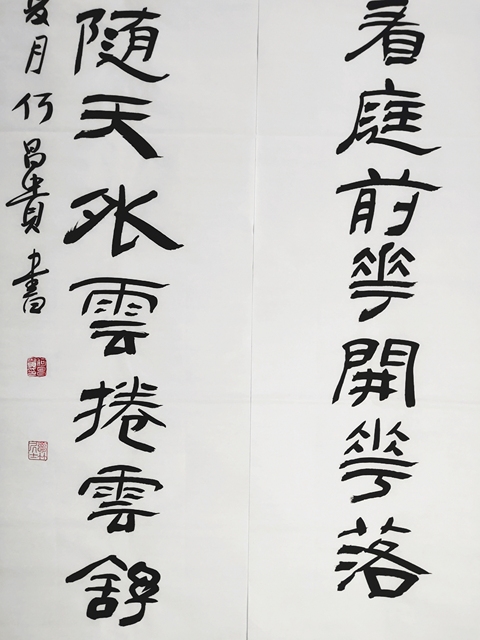 看庭前華開華落
随天外雲捲雲舒
月何昌貴書